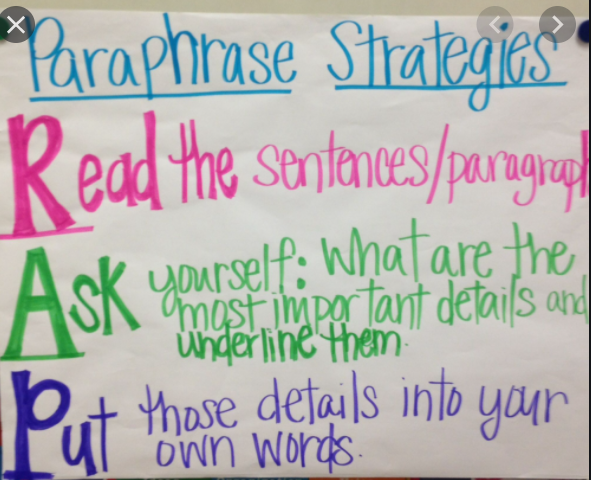 Paraphrase Strategies
Read the sentences/paragraph
Ask yourself: What are the
most important details and
underline them.
Put those details into your
own words.